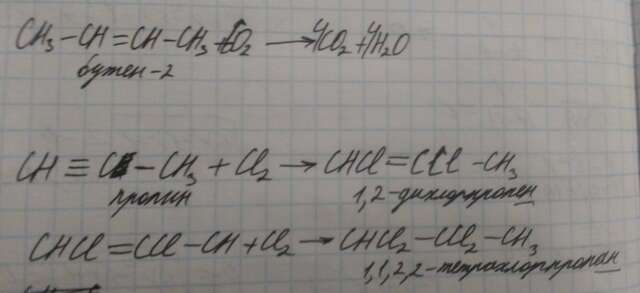 CH₃-CH=CH-CH₃+6O₂ → 4CO₂+4H₂O
бутен-2
CH≡C-CH₃+Cl₂ → CHCl=CCl-CH₃
пропин 1,2-дихлорпропен
CHCl=CCl-CH+Cl₂ → CHCl₂-CCl₂-CH₃
1,1,2,2-тетрахлорпропан